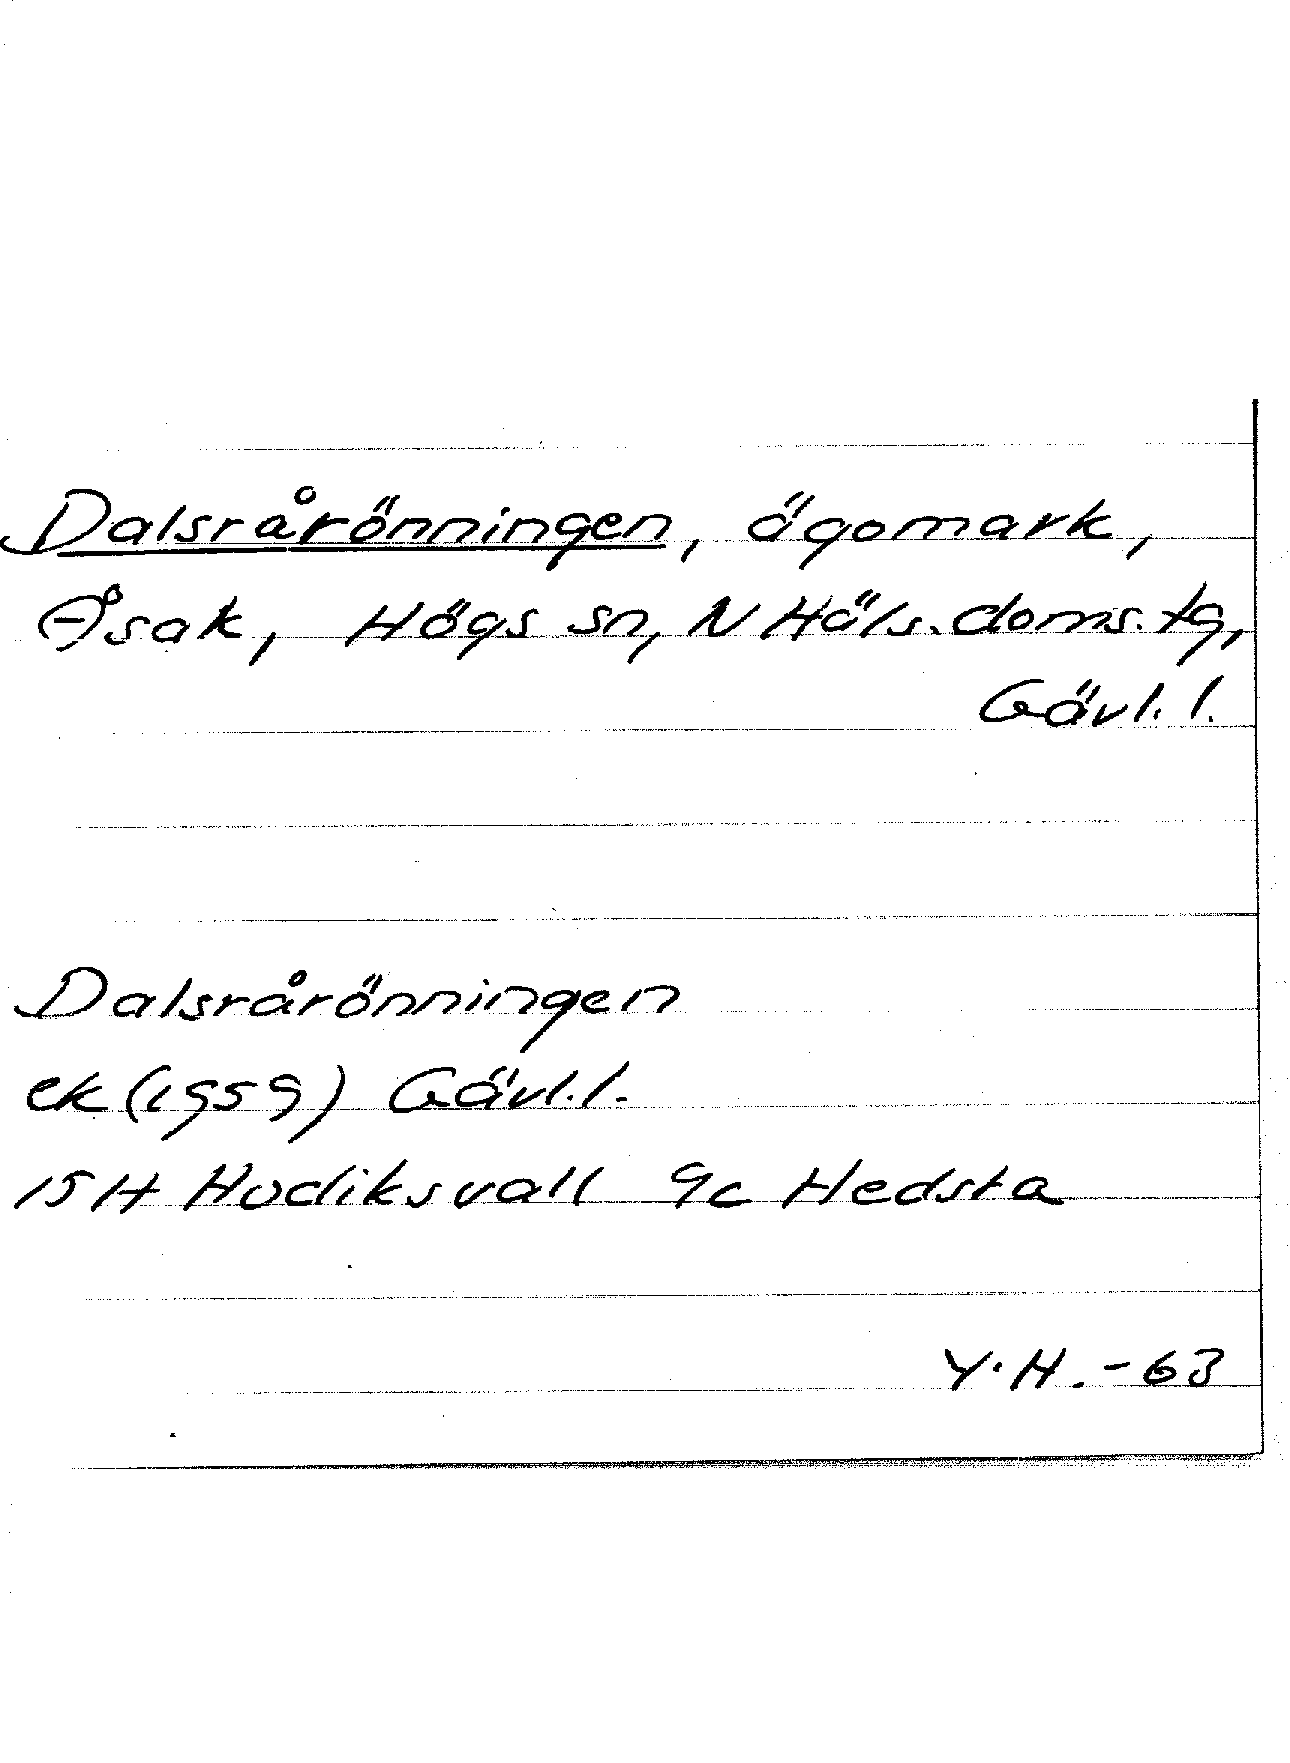 Dalsrårönningen, ägomark,
Åsak, Högs sn, N Häls. doms. tg,
Gävl. l.
Dalsrårönningen
ek (1959) Gävl. l.
15 H Hudiksvall 9c Hedsta
Y. H. - 63